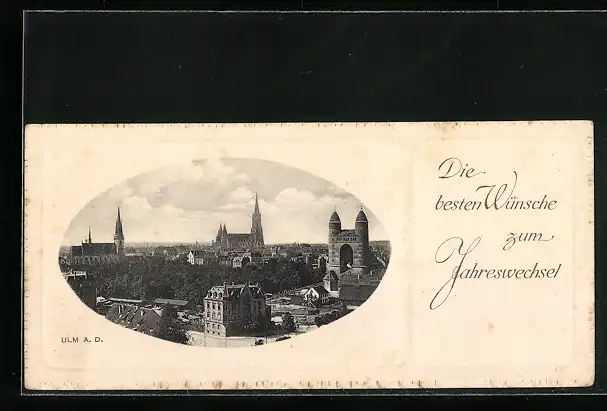 Die
besten Wünsche
zum
Jahreswechsel
ULM A. D.